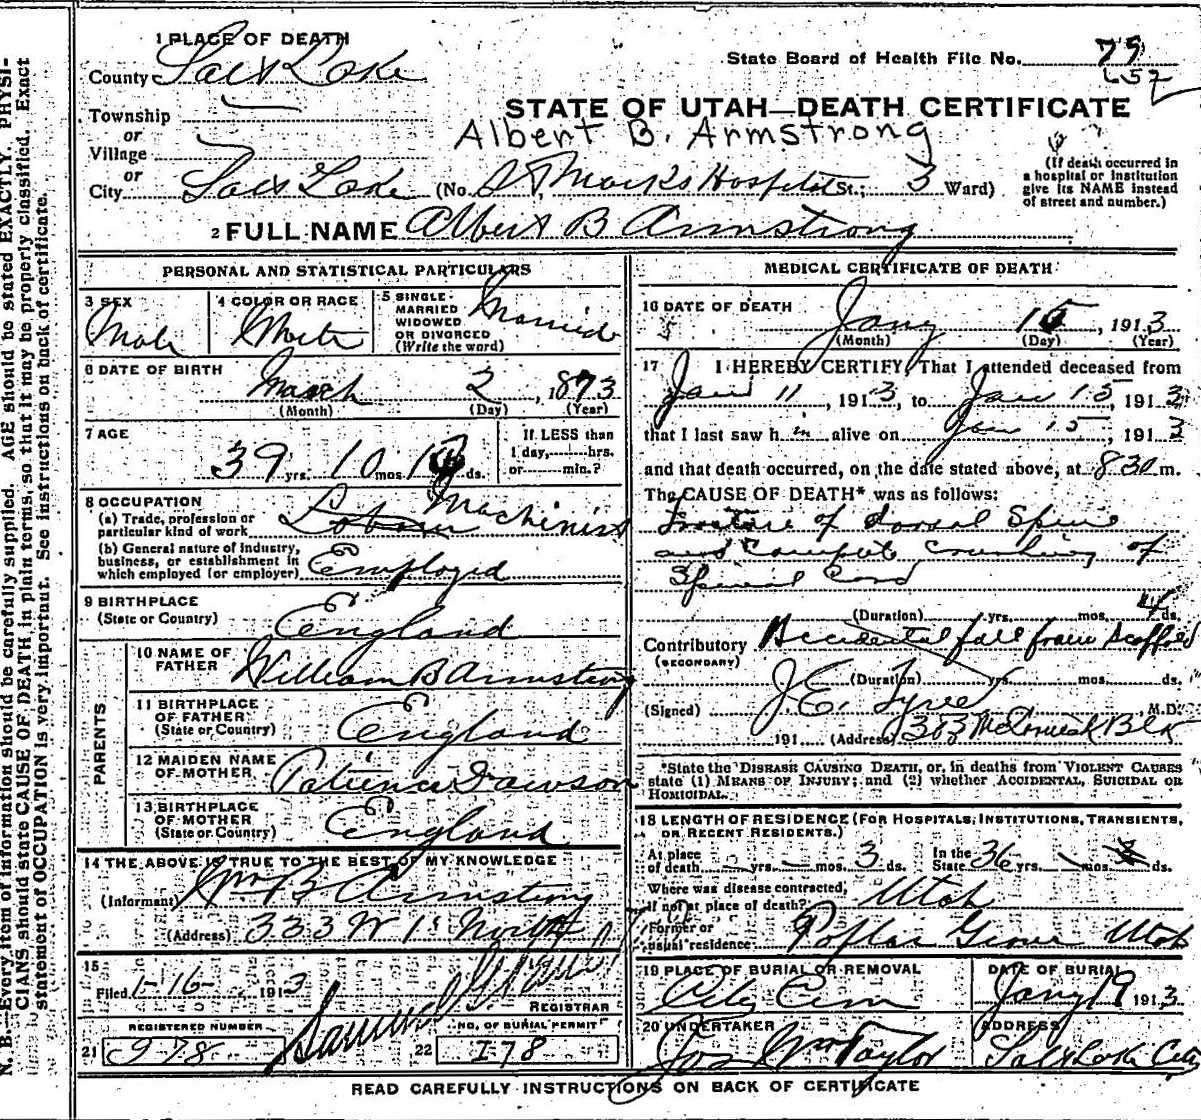 N. B.—Every item of information should be carefully supplied. AGE should be stated EXACTLY. PHYSI-
CIANS should state CAUSE OF DEATH in plain terms, so that it may be properly classified. Exact
statement of OCCUPATION is very important. See instructions on back of certificate.
1 PLACE OF DEATH
County Salt Lake
State Board of Health File No. 79
652
Township
or
Village
or
STATE OF UTAH—DEATH CERTIFICATE
Albert B. Armstrong
City Salt Lake (No. St Marks Hospital St.; 3 Ward)
(If death occurred in
a hospital or institution
give its NAME instead
of street and number.)
2 FULL NAME Albert B Armstrong
PERSONAL AND STATISTICAL PARTICULARS
3 SEX
Male
4 COLOR OR RACE
White
5 SINGLE
MARRIED
WIDOWED
OR DIVORCED
(Write the word)
Married
6 DATE OF BIRTH
March 2, 1873
(Month) (Day) (Year)
7 AGE
39 yrs. 10 mos. ds.
If LESS than
1 day,......hrs.
or......min.?
8 OCCUPATION
(a) Trade, profession or
particular kind of work Laborer Machinist
(b) General nature of industry,
business, or establishment in
which employed (or employer) Employed
9 BIRTHPLACE
(State or Country) England
PARENTS
10 NAME OF
FATHER William B Armstrong
11 BIRTHPLACE
OF FATHER
(State or Country) England
12 MAIDEN NAME
OF MOTHER Patience Dawson
13 BIRTHPLACE
OF MOTHER
(State or Country) England
14 THE ABOVE IS TRUE TO THE BEST OF MY KNOWLEDGE
(Informant) Wm B Armstrong
(Address) 333 W 1st North
15
Filed 1-16-, 1913 Samuel
REGISTRAR
REGISTERED NUMBER
21 978
NO. OF BURIAL PERMIT
22 178
MEDICAL CERTIFICATE OF DEATH
16 DATE OF DEATH
Jany 15, 1913
(Month) (Day) (Year)
17 I HEREBY CERTIFY, That I attended deceased from
Jan 11, 1913, to Jan 15, 1913
that I last saw him alive on Jan 15, 1913
and that death occurred, on the date stated above, at 830 m.
The CAUSE OF DEATH* was as follows:
Fracture of Dorsal Spine
and Complete Crushing of
Spinal Cord
(Duration) yrs. mos. 4 ds.
Contributory Accidental fall from Scaffold
(SECONDARY)
(Duration) yrs. mos. ds.
(Signed) J. E. Tyree, M.D.
191 (Address) 303 McCornick Blk
*State the DISEASE CAUSING DEATH, or, in deaths from VIOLENT CAUSES
state (1) MEANS OF INJURY; and (2) whether ACCIDENTAL, SUICIDAL OR
HOMICIDAL.
18 LENGTH OF RESIDENCE (FOR HOSPITALS, INSTITUTIONS, TRANSIENTS,
OR RECENT RESIDENTS.)
At place
of death yrs. mos. 3 ds. In the
State 36 yrs. mos. ds.
Where was disease contracted,
if not at place of death? Utah
Former or
usual residence Poplar Grove Utah
19 PLACE OF BURIAL OR REMOVAL
City Cem
DATE OF BURIAL
Jany 19 1913
20 UNDERTAKER
Jos Wm Taylor
ADDRESS
Salt Lake City
READ CAREFULLY INSTRUCTIONS ON BACK OF CERTIFICATE